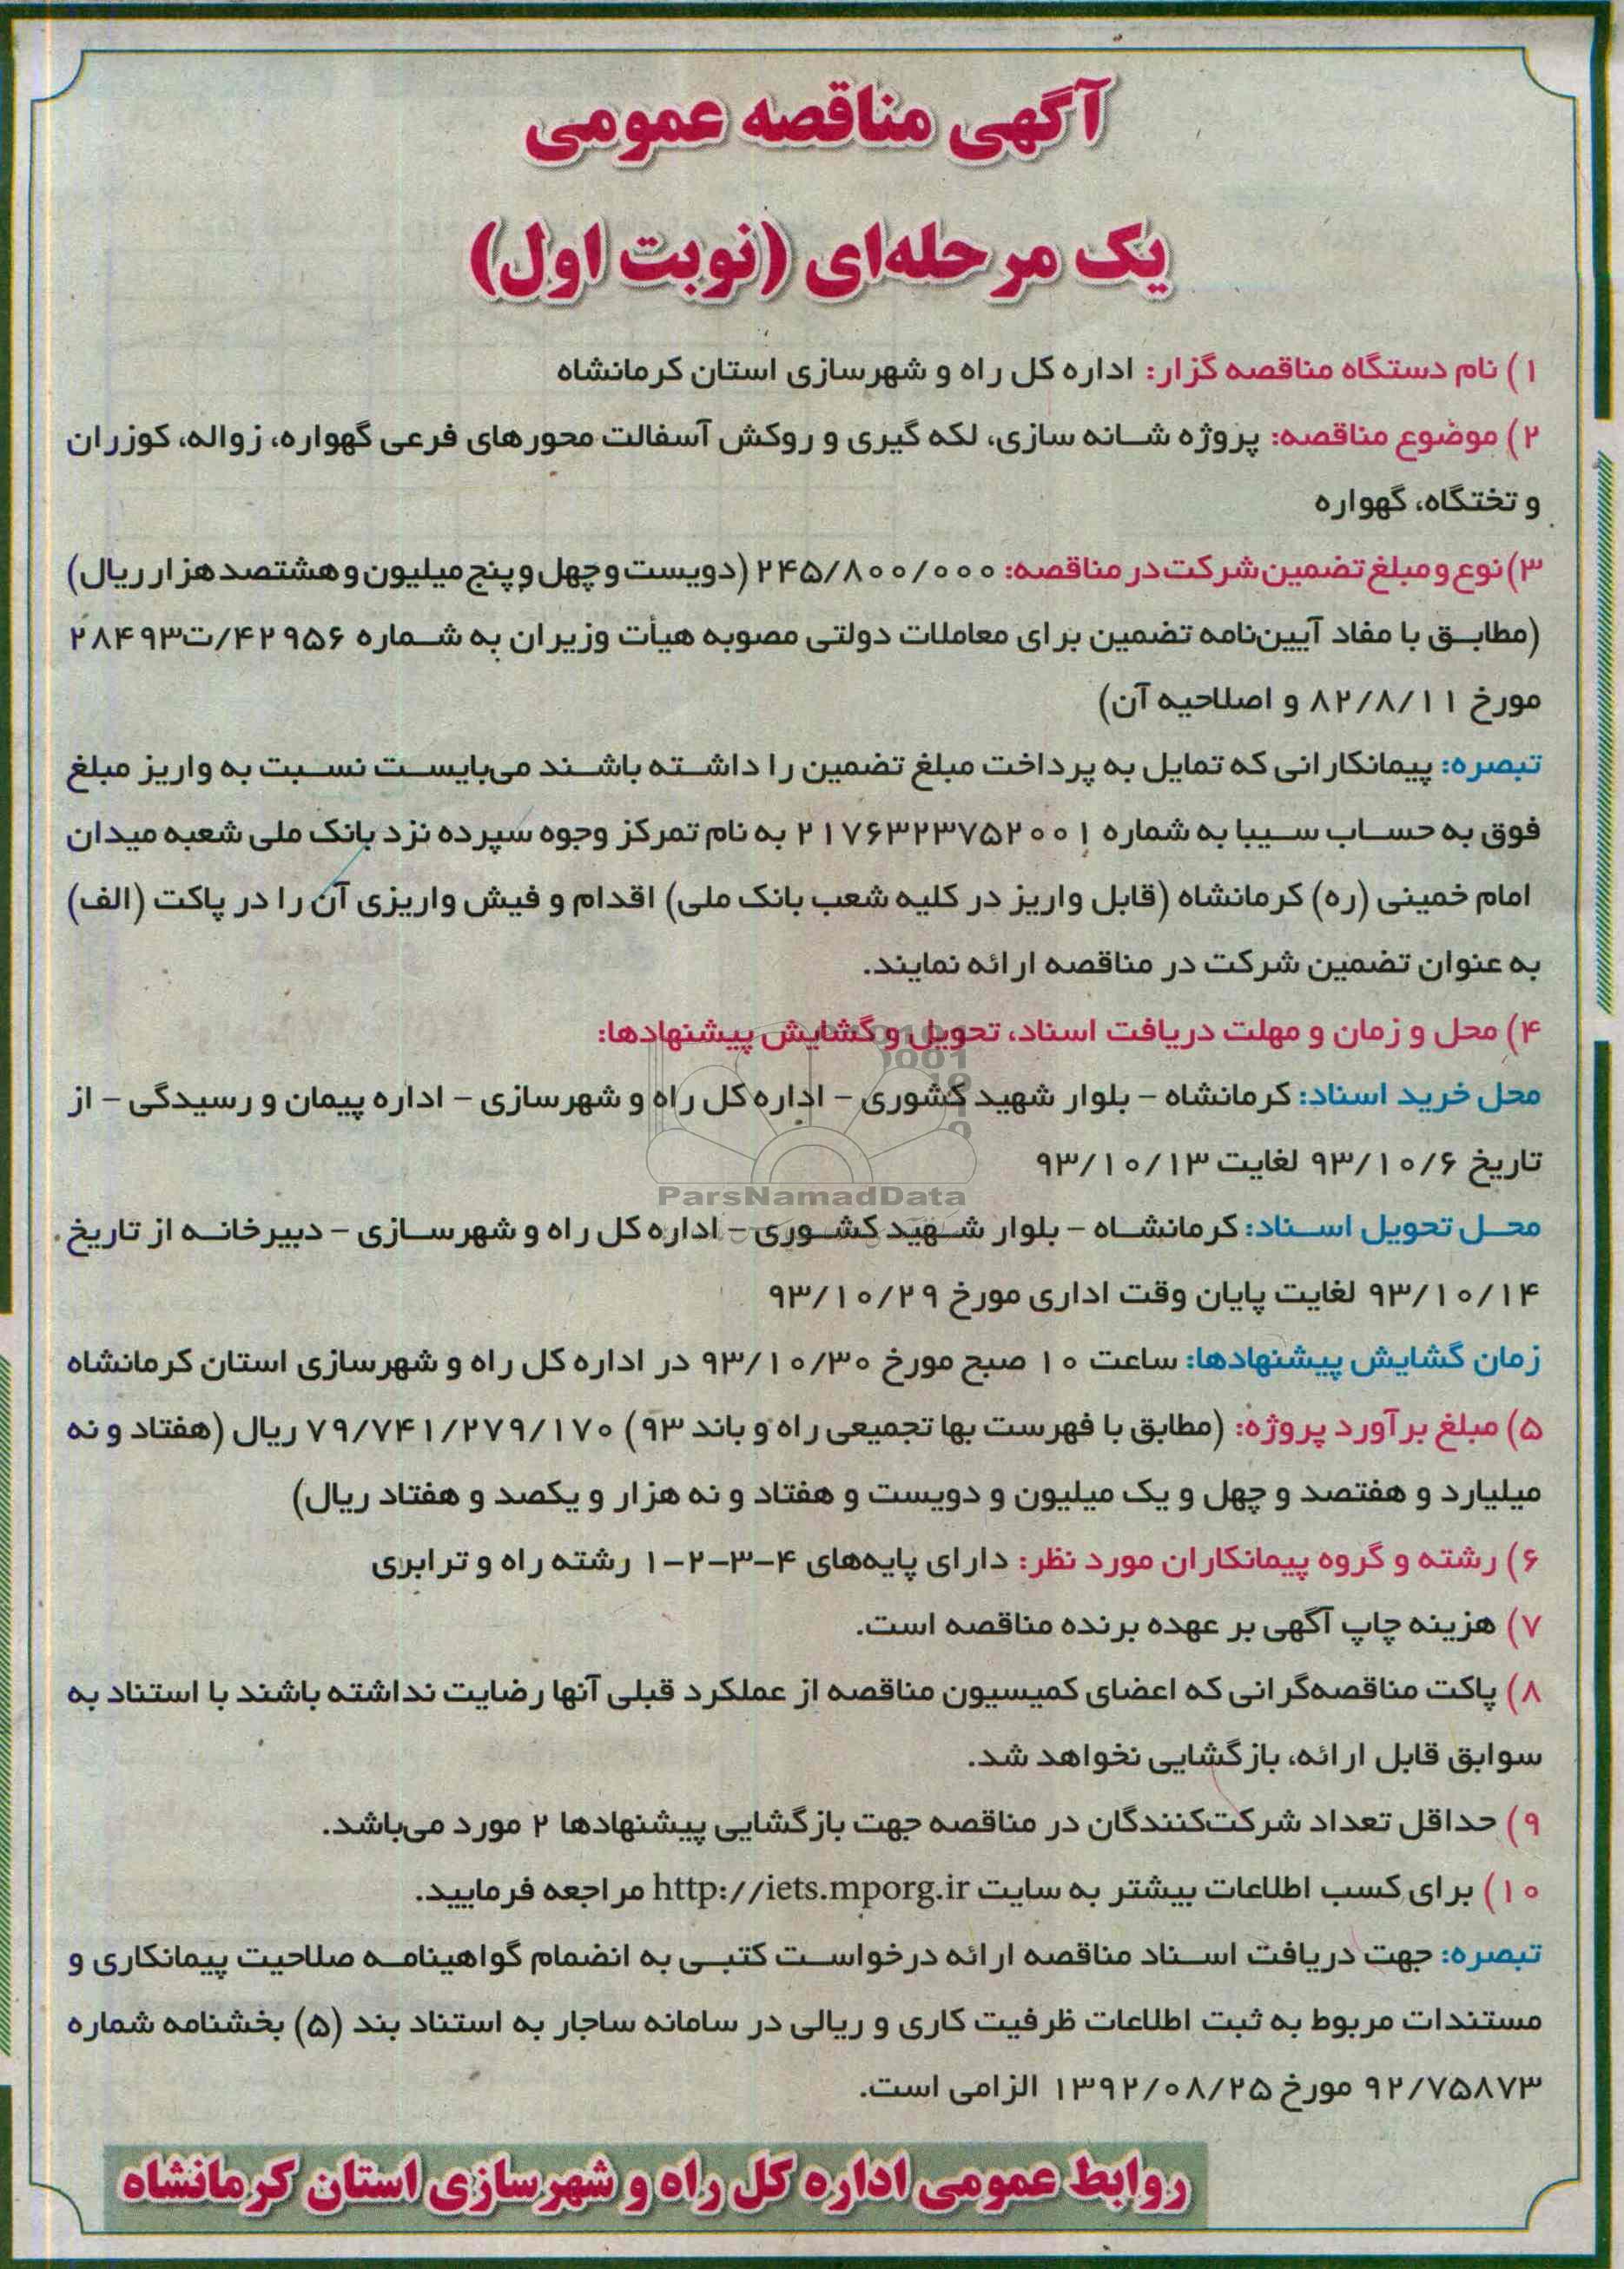 آگهی مناقصه عمومی
یک مرحله‌ای (نوبت اول)
۱) نام دستگاه مناقصه گزار: اداره کل راه و شهرسازی استان کرمانشاه
۲) موضوع مناقصه: پروژه شانه سازی، لکه گیری و روکش آسفالت محورهای فرعی گهواره، زواله، کوزران
و تختگاه، گهواره
۳) نوع و مبلغ تضمین شرکت در مناقصه: ۲۴۵/۸۰۰/۰۰۰ (دویست و چهل و پنج میلیون و هشتصد هزار ریال)
(مطابق با مفاد آیین‌نامه تضمین برای معاملات دولتی مصوبه هیأت وزیران به شماره ۴۲۹۵۶/ت۲۸۴۹۳
مورخ ۸۲/۸/۱۱ و اصلاحیه آن)
تبصره: پیمانکارانی که تمایل به پرداخت مبلغ تضمین را داشته باشند می‌بایست نسبت به واریز مبلغ
فوق به حساب سیبا به شماره ۲۱۷۶۳۲۳۷۵۲۰۰۱ به نام تمرکز وجوه سپرده نزد بانک ملی شعبه میدان
امام خمینی (ره) کرمانشاه (قابل واریز در کلیه شعب بانک ملی) اقدام و فیش واریزی آن را در پاکت (الف)
به عنوان تضمین شرکت در مناقصه ارائه نمایند.
۴) محل و زمان و مهلت دریافت اسناد، تحویل و گشایش پیشنهادها:
محل خرید اسناد: کرمانشاه – بلوار شهید کشوری – اداره کل راه و شهرسازی – اداره پیمان و رسیدگی – از
تاریخ ۹۳/۱۰/۶ لغایت ۹۳/۱۰/۱۳
ParsNamadData
محل تحویل اسناد: کرمانشاه – بلوار شهید کشوری – اداره کل راه و شهرسازی – دبیرخانه از تاریخ
۹۳/۱۰/۱۴ لغایت پایان وقت اداری مورخ ۹۳/۱۰/۲۹
زمان گشایش پیشنهادها: ساعت ۱۰ صبح مورخ ۹۳/۱۰/۳۰ در اداره کل راه و شهرسازی استان کرمانشاه
۵) مبلغ برآورد پروژه: (مطابق با فهرست بها تجمیعی راه و باند ۹۳) ۷۹/۷۴۱/۲۷۹/۱۷۰ ریال (هفتاد و نه
میلیارد و هفتصد و چهل و یک میلیون و دویست و هفتاد و نه هزار و یکصد و هفتاد ریال)
۶) رشته و گروه پیمانکاران مورد نظر: دارای پایه‌های ۴-۳-۲-۱ رشته راه و ترابری
۷) هزینه چاپ آگهی بر عهده برنده مناقصه است.
۸) پاکت مناقصه‌گرانی که اعضای کمیسیون مناقصه از عملکرد قبلی آنها رضایت نداشته باشند با استناد به
سوابق قابل ارائه، بازگشایی نخواهد شد.
۹) حداقل تعداد شرکت‌کنندگان در مناقصه جهت بازگشایی پیشنهادها ۲ مورد می‌باشد.
۱۰) برای کسب اطلاعات بیشتر به سایت http://iets.mporg.ir مراجعه فرمایید.
تبصره: جهت دریافت اسناد مناقصه ارائه درخواست کتبی به انضمام گواهینامه صلاحیت پیمانکاری و
مستندات مربوط به ثبت اطلاعات ظرفیت کاری و ریالی در سامانه ساجار به استناد بند (۵) بخشنامه شماره
۹۲/۷۵۸۷۳ مورخ ۱۳۹۲/۰۸/۲۵ الزامی است.
روابط عمومی اداره کل راه و شهرسازی استان کرمانشاه